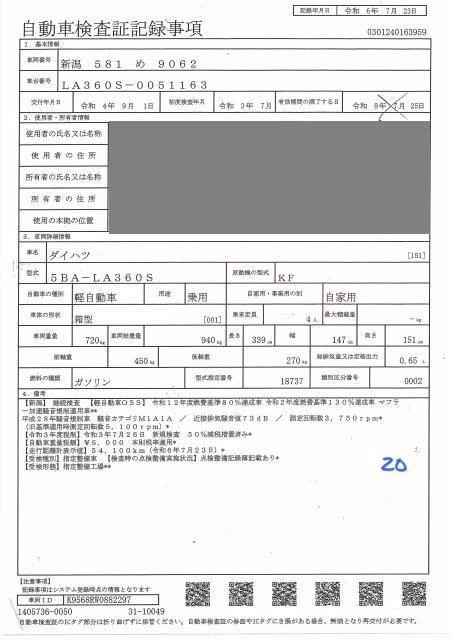 記録年月日 令和 6年 7月 23日
自動車検査証記録事項
0301240163959
1. 基本情報
車両番号 新潟 581 め 9062
車台番号 LA360S-0051163
交付年月日 令和 4年 9月 1日 初度検査年月 令和 3年 7月 有効期間の満了する日 令和 8年 7月 25日
2. 使用者・所有者情報
使用者の氏名又は名称
使用者の住所
所有者の氏名又は名称
所有者の住所
使用の本拠の位置
3. 車両詳細情報
車名 ダイハツ [151]
型式 5BA-LA360S 原動機の型式 KF
自動車の種別 軽自動車 用途 乗用 自家用・事業用の別 自家用
車体の形状 箱型 [001] 乗車定員 4人 最大積載量 -kg
車両重量 720kg 車両総重量 940kg 長さ 339cm 幅 147cm 高さ 151cm
前軸重 450kg 後軸重 270kg 総排気量又は定格出力 0.65 L
燃料の種類 ガソリン 型式指定番号 18737 類別区分番号 0002
4. 備考
【新潟】 継続検査 【軽自動車OSS】 令和12年度燃費基準80%達成車 令和2年度燃費基準130%達成車 マフラ
ー加速騒音規制適用車**
平成28年騒音規制車 騒音カテゴリM1A1A / 近接排気騒音値73dB / 測定回転数3,750rpm*
(旧基準適用時測定回転数5,100rpm)*
【令和3年度税制】令和3年7月26日 新規検査 50%減税措置済み*
【自動車重量税額】¥5,000 本則税率適用*
【走行距離計表示値】54,100km(令和6年7月23日)*
【受検種別】指定整備車 【検査時の点検整備実施状況】点検整備記録簿記載あり*
【受検形態】指定整備工場**
20
【注意事項】
記録事項はシステム登録時点の情報となります
車両ID K9568RW0882297
1405736-0050 31-10049
自動車検査証のICタグ部分は折り曲げずに保管ください。自動車検査証の券面やICタグにき損がある場合、無効となり再交付が必要です。